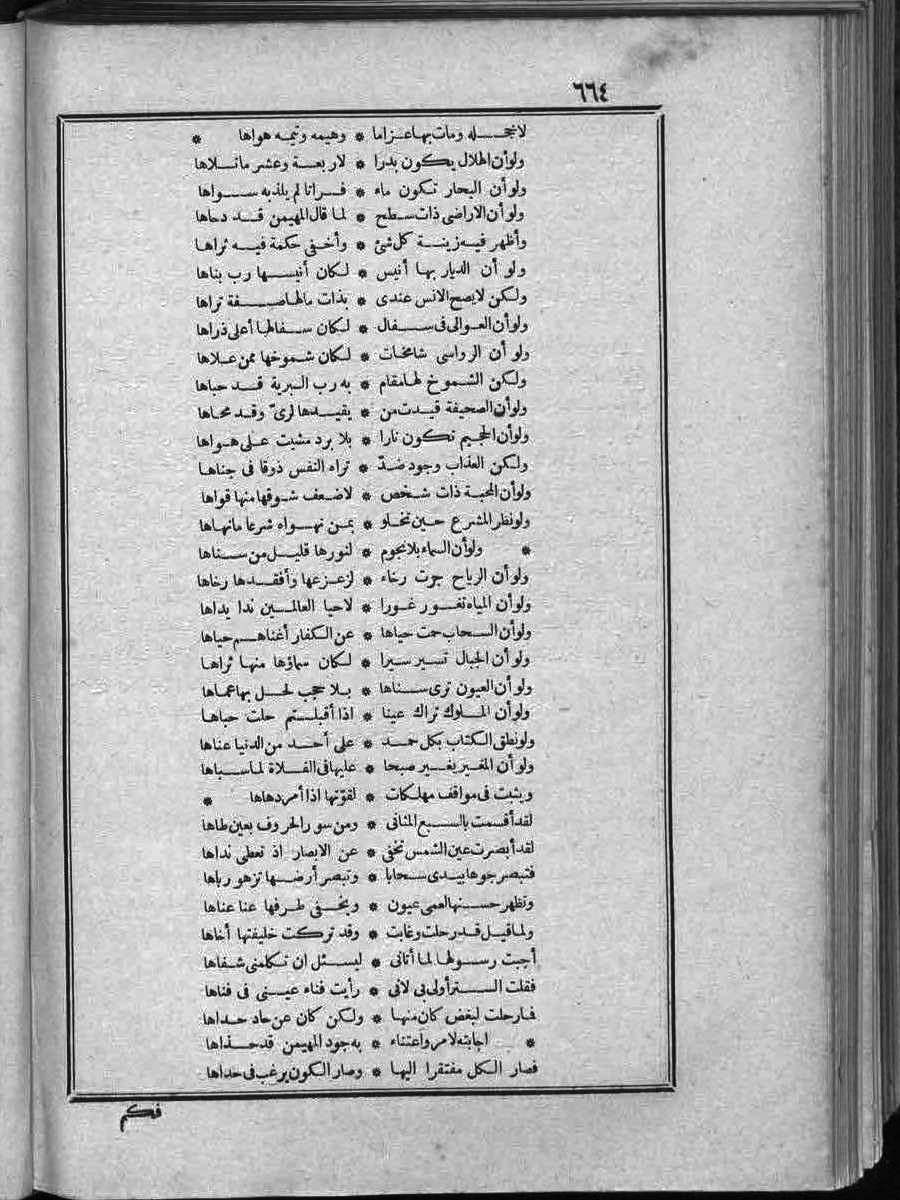 ٦٦٤
لانجله ومات بها غراما * وهيمه وتيمه هواها *
ولو أن الهلال يكون بدرا * لاربعة وعشر ما تلاها
ولو أن البحار تكون ماء * فراتا لم يلذ به سواها
ولو أن الاراضى ذات سطح * لما قال المهيمن قد دحاها
وأظهر فيه زينة كل شئ * وأخفى حكمة فيه ثراها
ولو أن الديار بها أنيس * لكان أنيسها رب بناها
ولكن لا يصح الانس عندى * بذات مالها صفة تراها
ولو أن العوالى فى سفال * لكان سفالها أعلى ذراها
ولو أن الرواسى شامخات * لكان شموخها ممن علاها
ولكن الشموخ لها مقام * به رب البرية قد حباها
ولو أن الصحيفة قيدت من * يقيدها لرىّ وقد محاها
ولو أن الجحيم تكون نارا * بلا برد مشيت على هواها
ولكن العذاب وجود ضدّ * تراه النفس ذوقا فى جناها
ولو أن المحبة ذات شخص * لاضعف شوقها منها قواها
ولو نظر المشرع حين تخلو * بمن تهواه شرعا ما نهاها
* ولو أن السماء بلا نجوم * لنورها قليل من سناها
ولو أن الرياح جرت رخاء * لزعزعها وأفقدها رخاها
ولو أن المياه تغور غورا * لاحيا العالمين ندا يداها
ولو أن السحاب حمت حياها * عن الكفار أغناهم حياها
ولو أن الجبال تسير سيرا * لكان سماؤها منها ثراها
ولو أن العيون ترى سناها * بلا حجب لحل بها عماها
ولو أن الملوك تراك عينا * اذا أقبلتم حلت حباها
ولو نطق الكتاب بكل حمد * على أحد من الدنيا عناها
ولو أن المغير يغير صبحا * عليها فى الفلاة لما سباها
ويثبت فى مواقف مهلكات * لقوّتها اذا أمر دهاها *
لقد أقسمت بالسبع المثانى * ومن سور الحروف بعين طاها
لقد أبصرت عين الشمس تخفى * عن الابصار اذ تعطى نداها
فتبصر جوها يبدى سحابا * وتبصر أرضها تزهو رباها
وتظهر حسنها لعمى عيون * ويخفى طرفها عنا عناها
ولما قيل قد رحلت وغابت * وقد تركت خليفتها أخاها
أجبت رسولها لما أتانى * ليسئل ان تكلمنى شفاها
فقلت الستر أولى بى لانى * رأيت فناء عينى فى فناها
فما رحلت لبغض كان منها * ولكن كان عن حاد حداها
* اجابته لامر واعتناء * به جود المهيمن قد حذاها
فصار الكل مفتقرا اليها * وصار الكون يرغب فى حداها
فكم